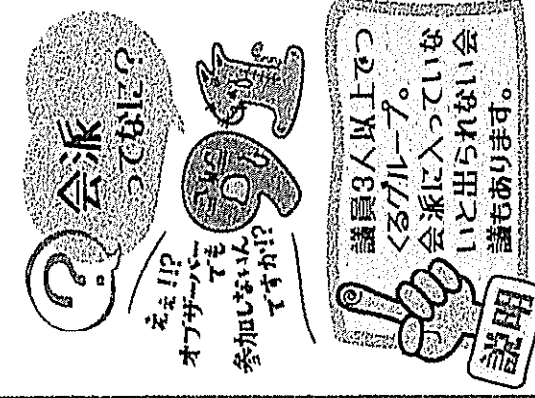 ?
会派
ってなに?
えぇ!!?
オブザーバー
でも
参加しないん
ですか!?
説明
議員3人以上でつ
くるグループ。
会派に入っていな
いと出られない会
議もあります。